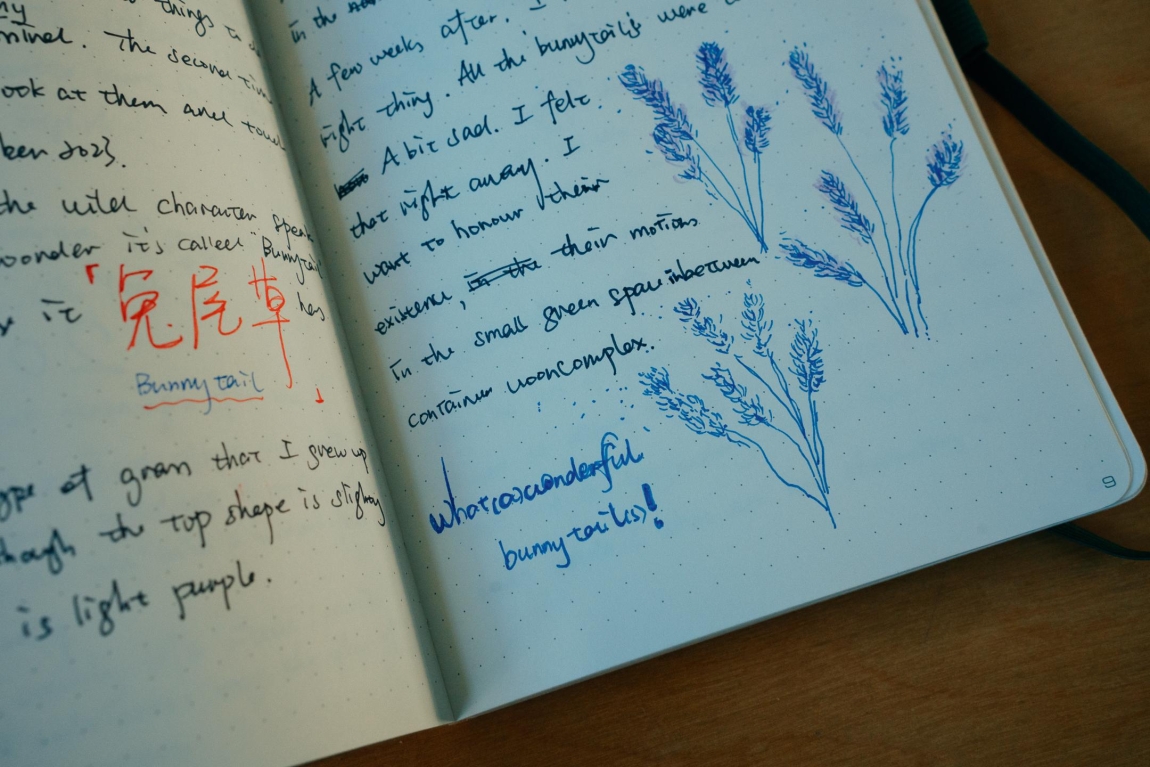 my things to
mind. The second
ook at them and
ber 2023.
the wild character
wonder it's called "Bunnytail
it 「兔尾草」 has
Bunnytail
ype of grass that I grew up
though the top shape is slightly
is light purple.
in the
A few weeks after. I
right thing. All the 'bunnytail's were
A bit sad. I felt
that right away. I
want to honour their
existence, in the their motions
in the small green space inbetween
container wooncomplex.
what(a)wonderful
bunnytail(s)!
9